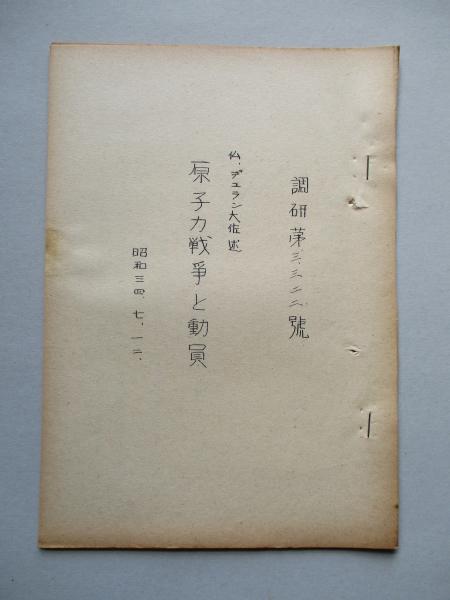 調研第三、三二二號
仏、デュラン大佐述
原子力戦爭と動員
昭和三四、七、一二、